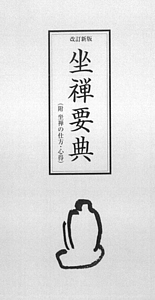 改訂新版
坐禅要典
（附 坐禅の仕方・心得）